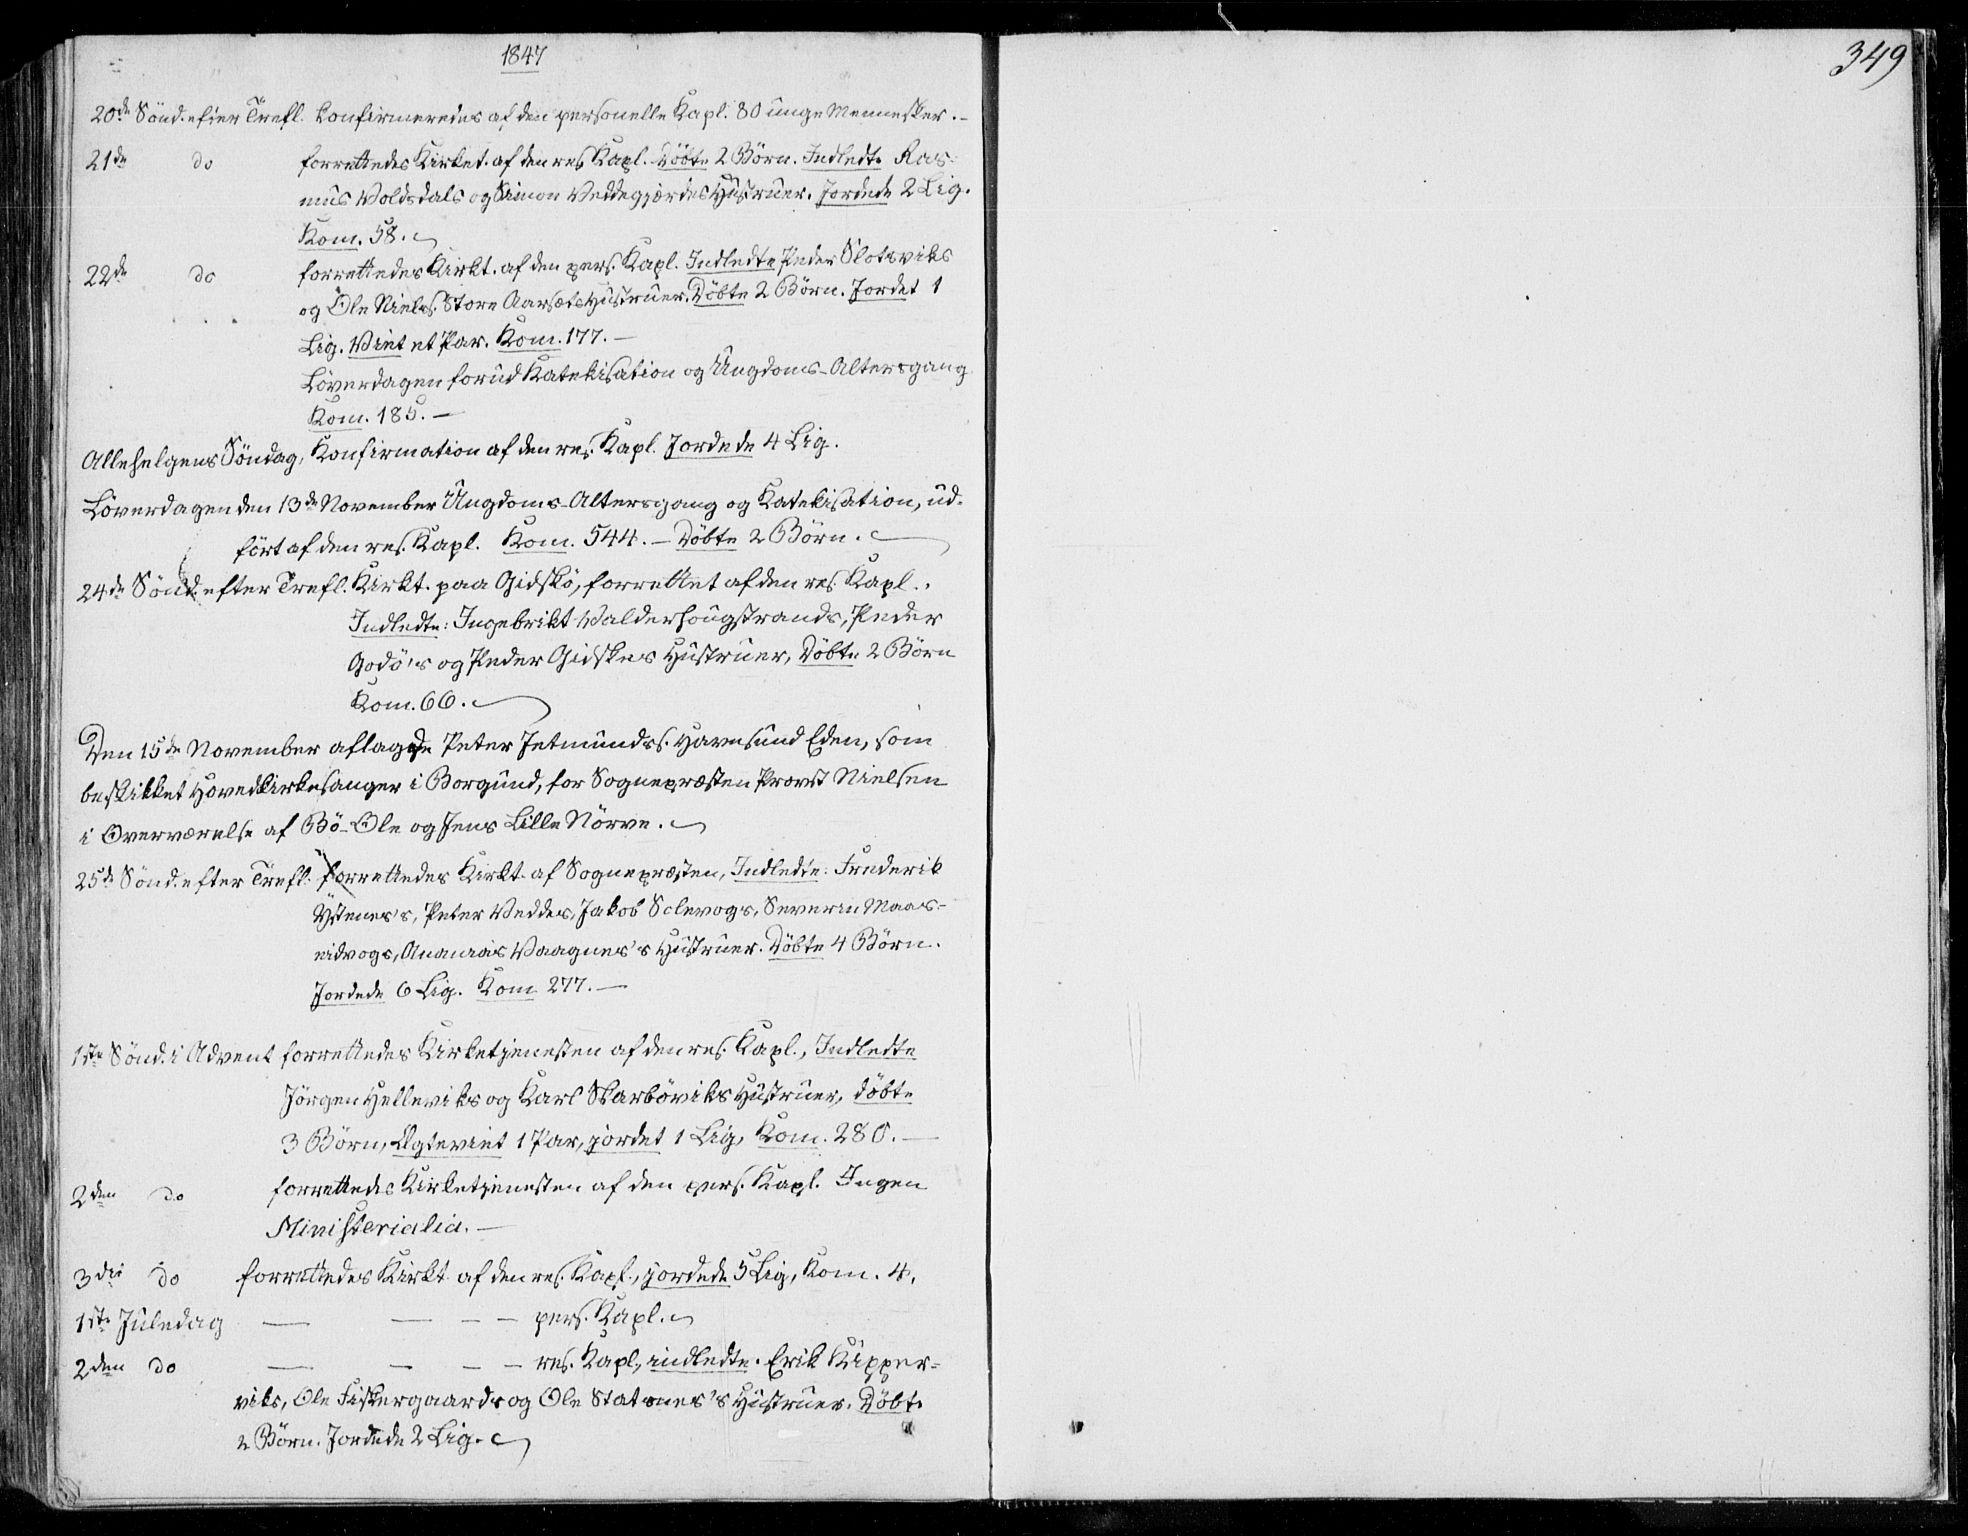 1847
349
20de Sönd. efter Trefl. Konfirmeredes af den personelle Kapl. 80 unge Mennesker.-
21de do forrettedes Kirket. af den res. Kapl. Döbte 2 Börn. Indledte Ras-
mus Voldsdals og Simon Veddegjærdes Hustruer. Jordede 2 Lig.
Kom. 58.
22de do forrettedes Kirkt. af den pers. Kapl. Indledte Peder Slotsviks
og Ole Niels. Store Aarsæts Hustruer. Döbte 2 Börn. Jordet 1
Lig. Viet et Par. Kom. 177.-
Löverdagen forud Katekisation og Ungdoms-Altergang
Kom. 185.-
Allehelgens Söndag, Konfirmation af den res. Kapl. Jordede 4 Lig.
Löverdagen den 13de November Ungdoms-Altersgang og Katekisation, ud-
fört af den res. Kapl. Kom. 544.- Döbte 2 Börn.
24de Sönd. efter Trefl. Kirkt. paa Gidskö, forrettet af den res. Kapl.
Indledte: Ingebrikt Valderhougstrands, Peder
Godö's og Peder Gidskes Hustruer, Döbte 2 Börn
Kom. 66.
Den 15de November aflagde Peter Jetmunds. Havnsund Eden, som
beskikket Hovedkirkesanger i Borgund, for Sognepræsten Provst Nielsen
i Overværelse af Bö-Ole og Jens Lille Nörve.
25de Sönd. efter Trefl. forrettedes Kirkt. af Sognepræsten, Indledte: Frederik
Ystenes's, Peter Veddes, Jakob Solevogs, Severin Maas-
eidvogs, Ananias Vaagnes's Hustruer. Döbte 4 Börn.
Jordede 6 Lig. Kom 277.-
1ste Sönd. i Advent forrettedes Kirketjenesten af den res. Kapl., Indledte
Jörgen Helleviks og Karl Skarböviks Hustruer, döbte
3 Börn, Ægteviet 1 Par, jordet 1 Lig, Kom. 280.-
2den do forrettedes Kirketjenesten af den pers. Kapl. Ingen
Ministerialia.-
3die do forrettedes Kirkt. af den res. Kapl., jordede 5 Lig, Kom. 4.
1ste Juledag — — — — pers. Kapl.
2den do — — — — res. Kapl., indledte. Erik Kipper-
viks, Ole Fiskergaards og Ole Statsnes's Hustruer. Döbte
2 Börn. Jordede 2 Lig.